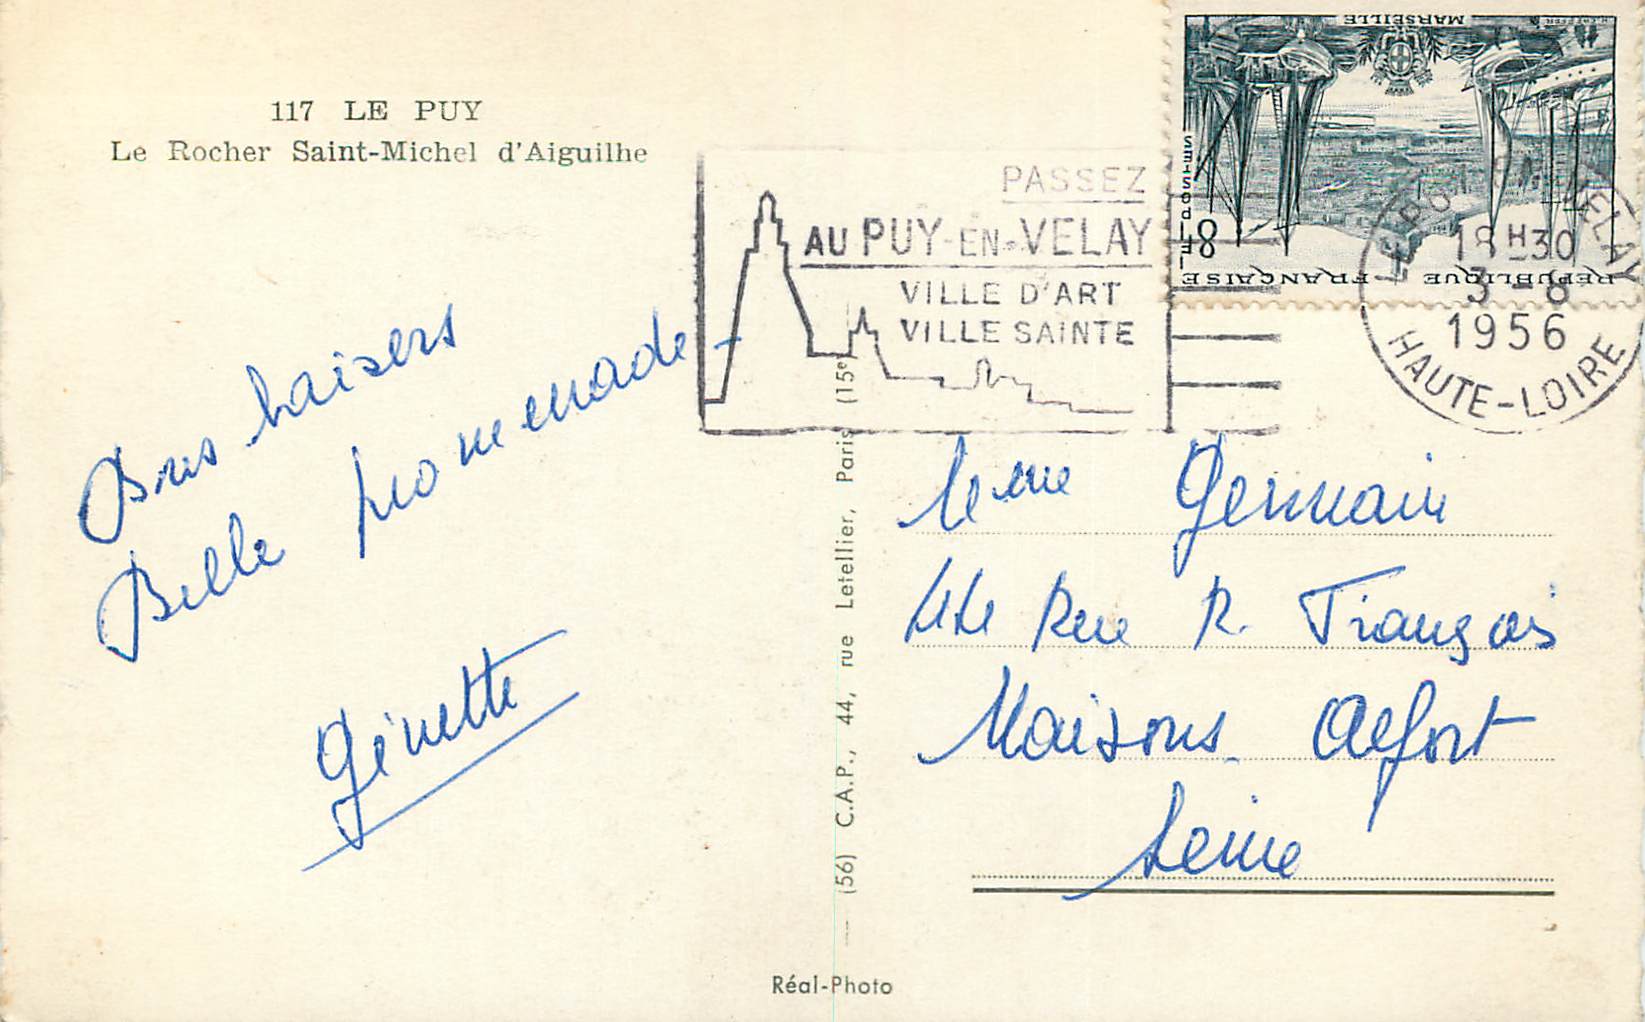 117 LE PUY
Le Rocher Saint-Michel d'Aiguilhe
Bons baisers
Belle promenade -
Ginette
PASSEZ
AU PUY-EN-VELAY
VILLE D'ART
VILLE SAINTE
MARSEILLE
POSTES
8F
REPUBLIQUE FRANÇAISE
LE PUY EN VELAY
18H30
3-6
1956
HAUTE-LOIRE
Mme Germain
44 Rue R. François
Maisons Alfort
Seine
— (56) C.A.P., 44, rue Letellier, Paris (15e)
Réal-Photo